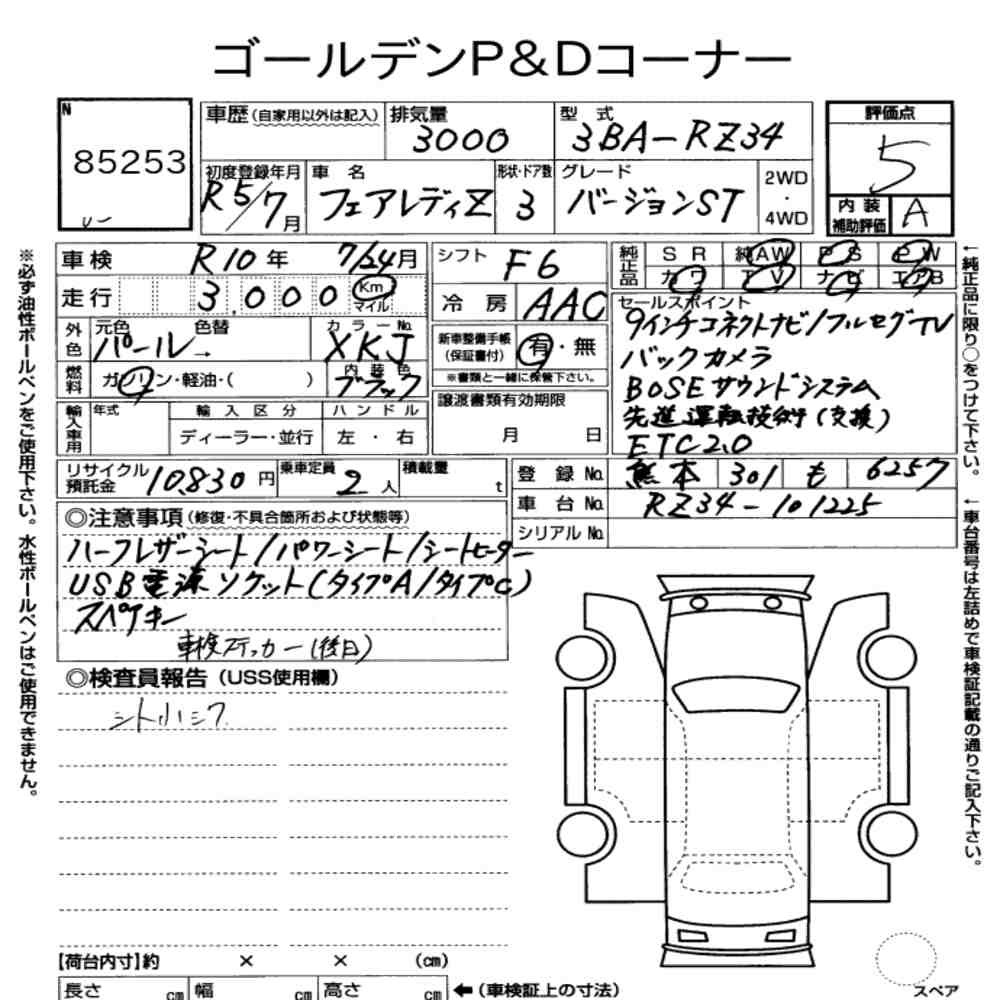 ゴールデンP&Dコーナー
N
85253
車歴(自家用以外は記入)
排気量
3000
型 式
3BA-RZ34
評価点
5
内装補助評価
A
初度登録年月
R5/7月
車 名
フェアレディZ
形状・ドア数
3
グレード
バージョンST
2WD
・
4WD
車検 R10年 7/24月
シフト F6
純正品
SR 純AW PS PW
カワ TV ナビ エアB
走行 3,000 Km マイル
冷房 AAC
セールスポイント
9インチコネクトナビ/フルセグTV
バックカメラ
BOSEサウンドシステム
先進運転技術(支援)
ETC2.0
外色
元色 色替
パール→
カラーNo.
XKJ
新車整備手帳(保証書付)
有・無
※書類と一緒に保管下さい。
燃料
ガソリン・軽油・( )
内装色
ブラック
譲渡書類有効期限
月 日
輸入車用
年式
輸入区分
ディーラー・並行
ハンドル
左・右
リサイクル預託金 10,830円
乗車定員 2人
積載量 t
登録No. 熊本 301 も 6257
車台No. RZ34-101225
シリアルNo.
◎注意事項(修復・不具合箇所および状態等)
ハーフレザーシート/パワーシート/シートヒーター
USB電源ソケット(タイプA/タイプC)
スペアキー
車検ステッカー(後日)
◎検査員報告(USS使用欄)
シート小シワ
【荷台内寸】約 × × (cm)
長さ cm 幅 cm 高さ cm
←(車検証上の寸法)
スペア
※必ず油性ボールペンをご使用下さい。水性ボールペンはご使用できません。
←純正品に限り○をつけて下さい。
←車台番号は左詰めで車検証記載の通りご記入下さい。